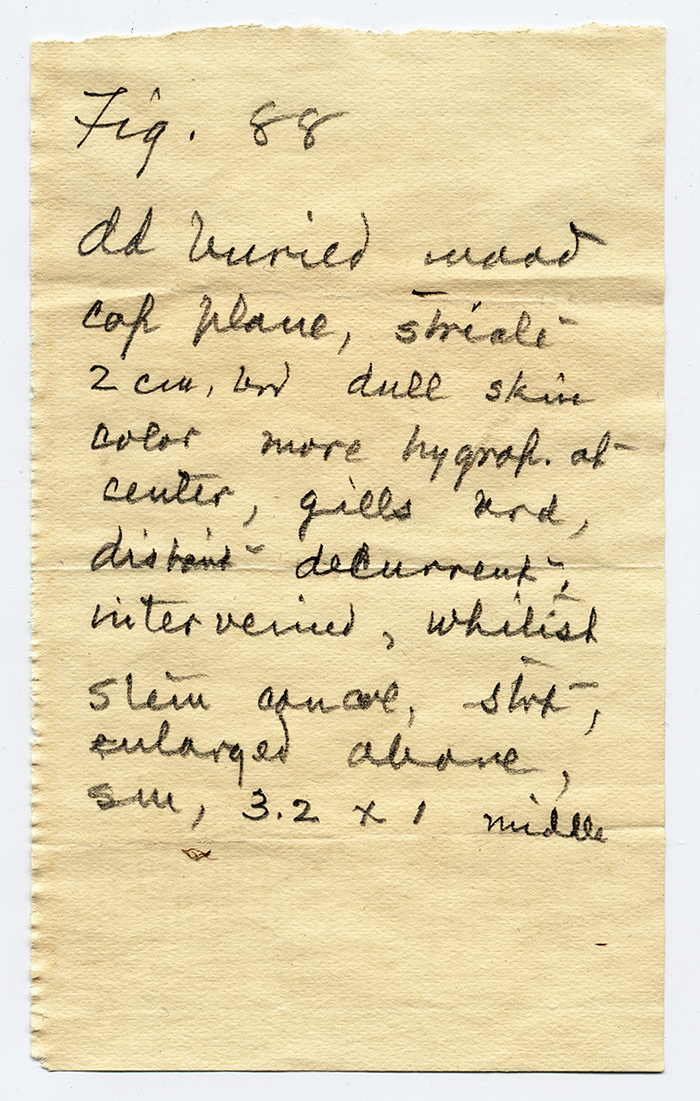 Fig. 88
old buried wood
cap plane, striate
2 cm, brd dull skin
color more hygrop. at
center, gills brd,
distant decurrent,
interveined, whitish
stem concol, strt,
enlarged above,
sm, 3.2 x 1 middle